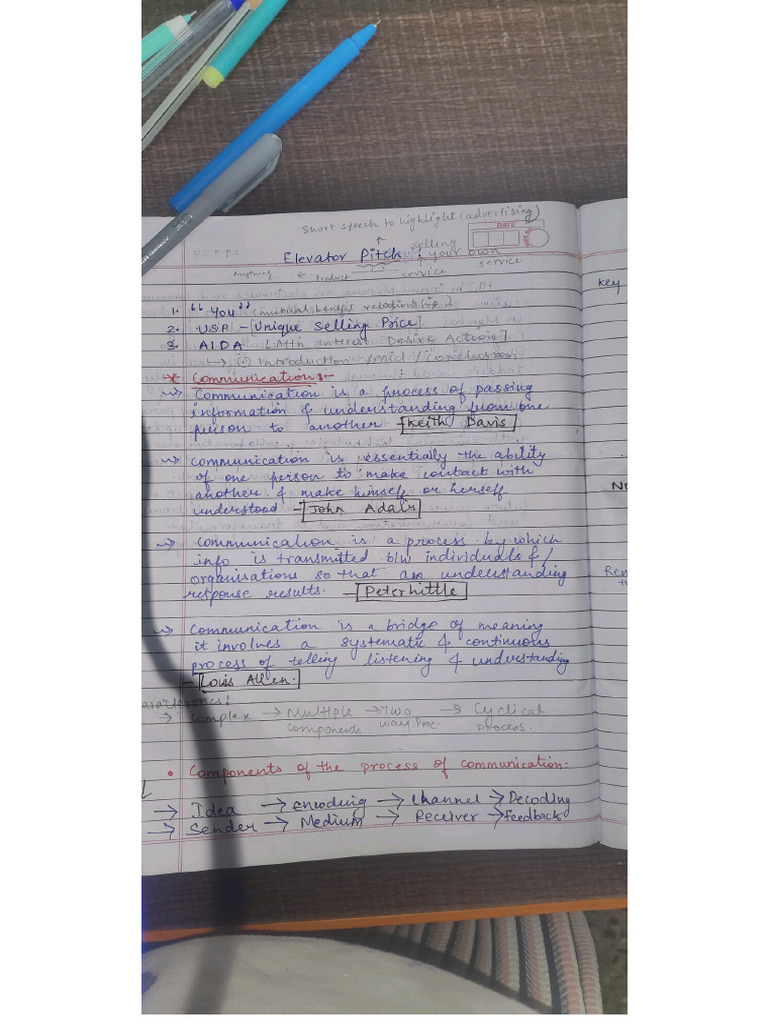 Short speech to highlight (advertising)
DATE
Elevator Pitch : selling your own service
Anything ← Product service
1. "You" (mutual benefit relationship)
2. USP - [Unique Selling Price]
3. AIDA [Attn Interest Desire Action]
→ Introduction / Mid / Conclusion
* Communication :-
Communication is a process of passing
information & understanding from one
person to another Keith Davis
Communication is essentially the ability
of one person to make contact with
another & make himself or herself
understood - John Adair
Communication is a process by which
info is transmitted b/w individuals & /
organisations so that an understanding
response results. - Peter little
Communication is a bridge of meaning
it involves a systematic & continuous
process of telling listening & understanding
- Louis Allen.
→ Complex → Multiple components → Two way Proc. → Cyclical process.
• Components of the process of communication:
→ Idea → encoding → Channel → Decoding
→ Sender → Medium → Receiver → feedback
Key